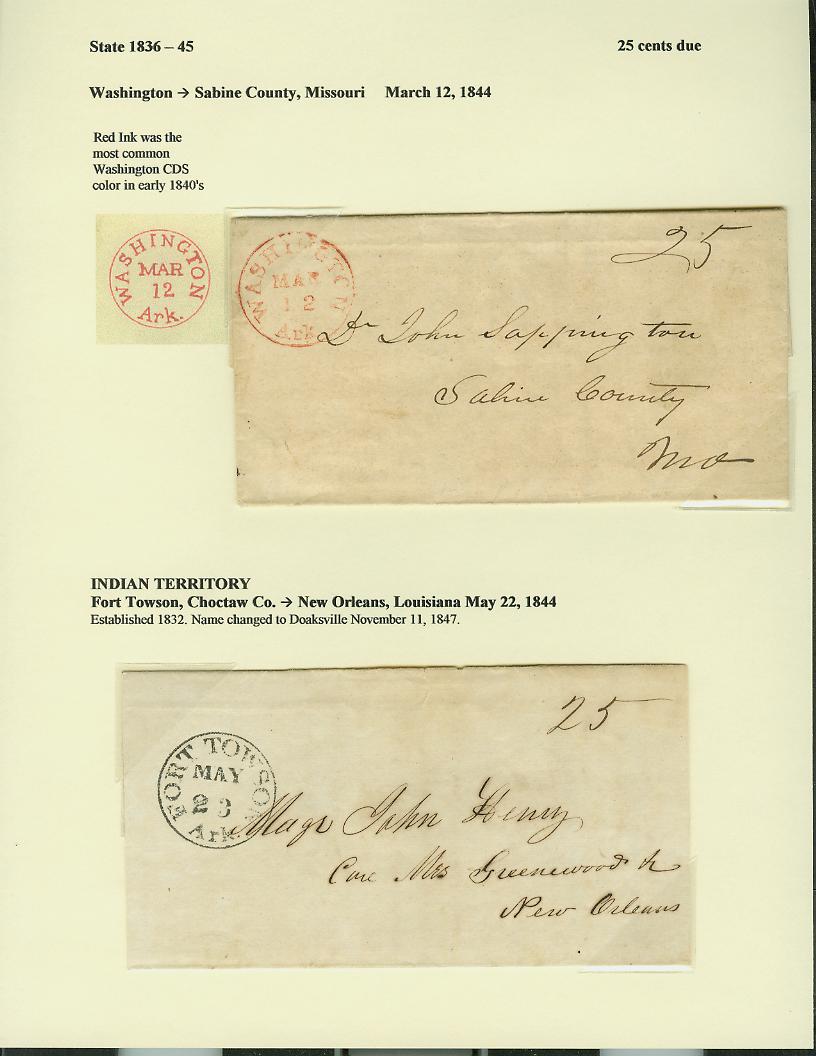 State 1836 – 45
25 cents due
Washington → Sabine County, Missouri March 12, 1844
Red Ink was the
most common
Washington CDS
color in early 1840's
WASHINGTON
MAR
12
Ark.
WASHINGTON
MAR
12
Ark
25
Dr John Sappington
Saline County
Mo
INDIAN TERRITORY
Fort Towson, Choctaw Co. → New Orleans, Louisiana May 22, 1844
Established 1832. Name changed to Doaksville November 11, 1847.
FORT TOWSON
MAY
23
Ark.
25
John Henry
Care Mrs Greenewood &
New Orleans